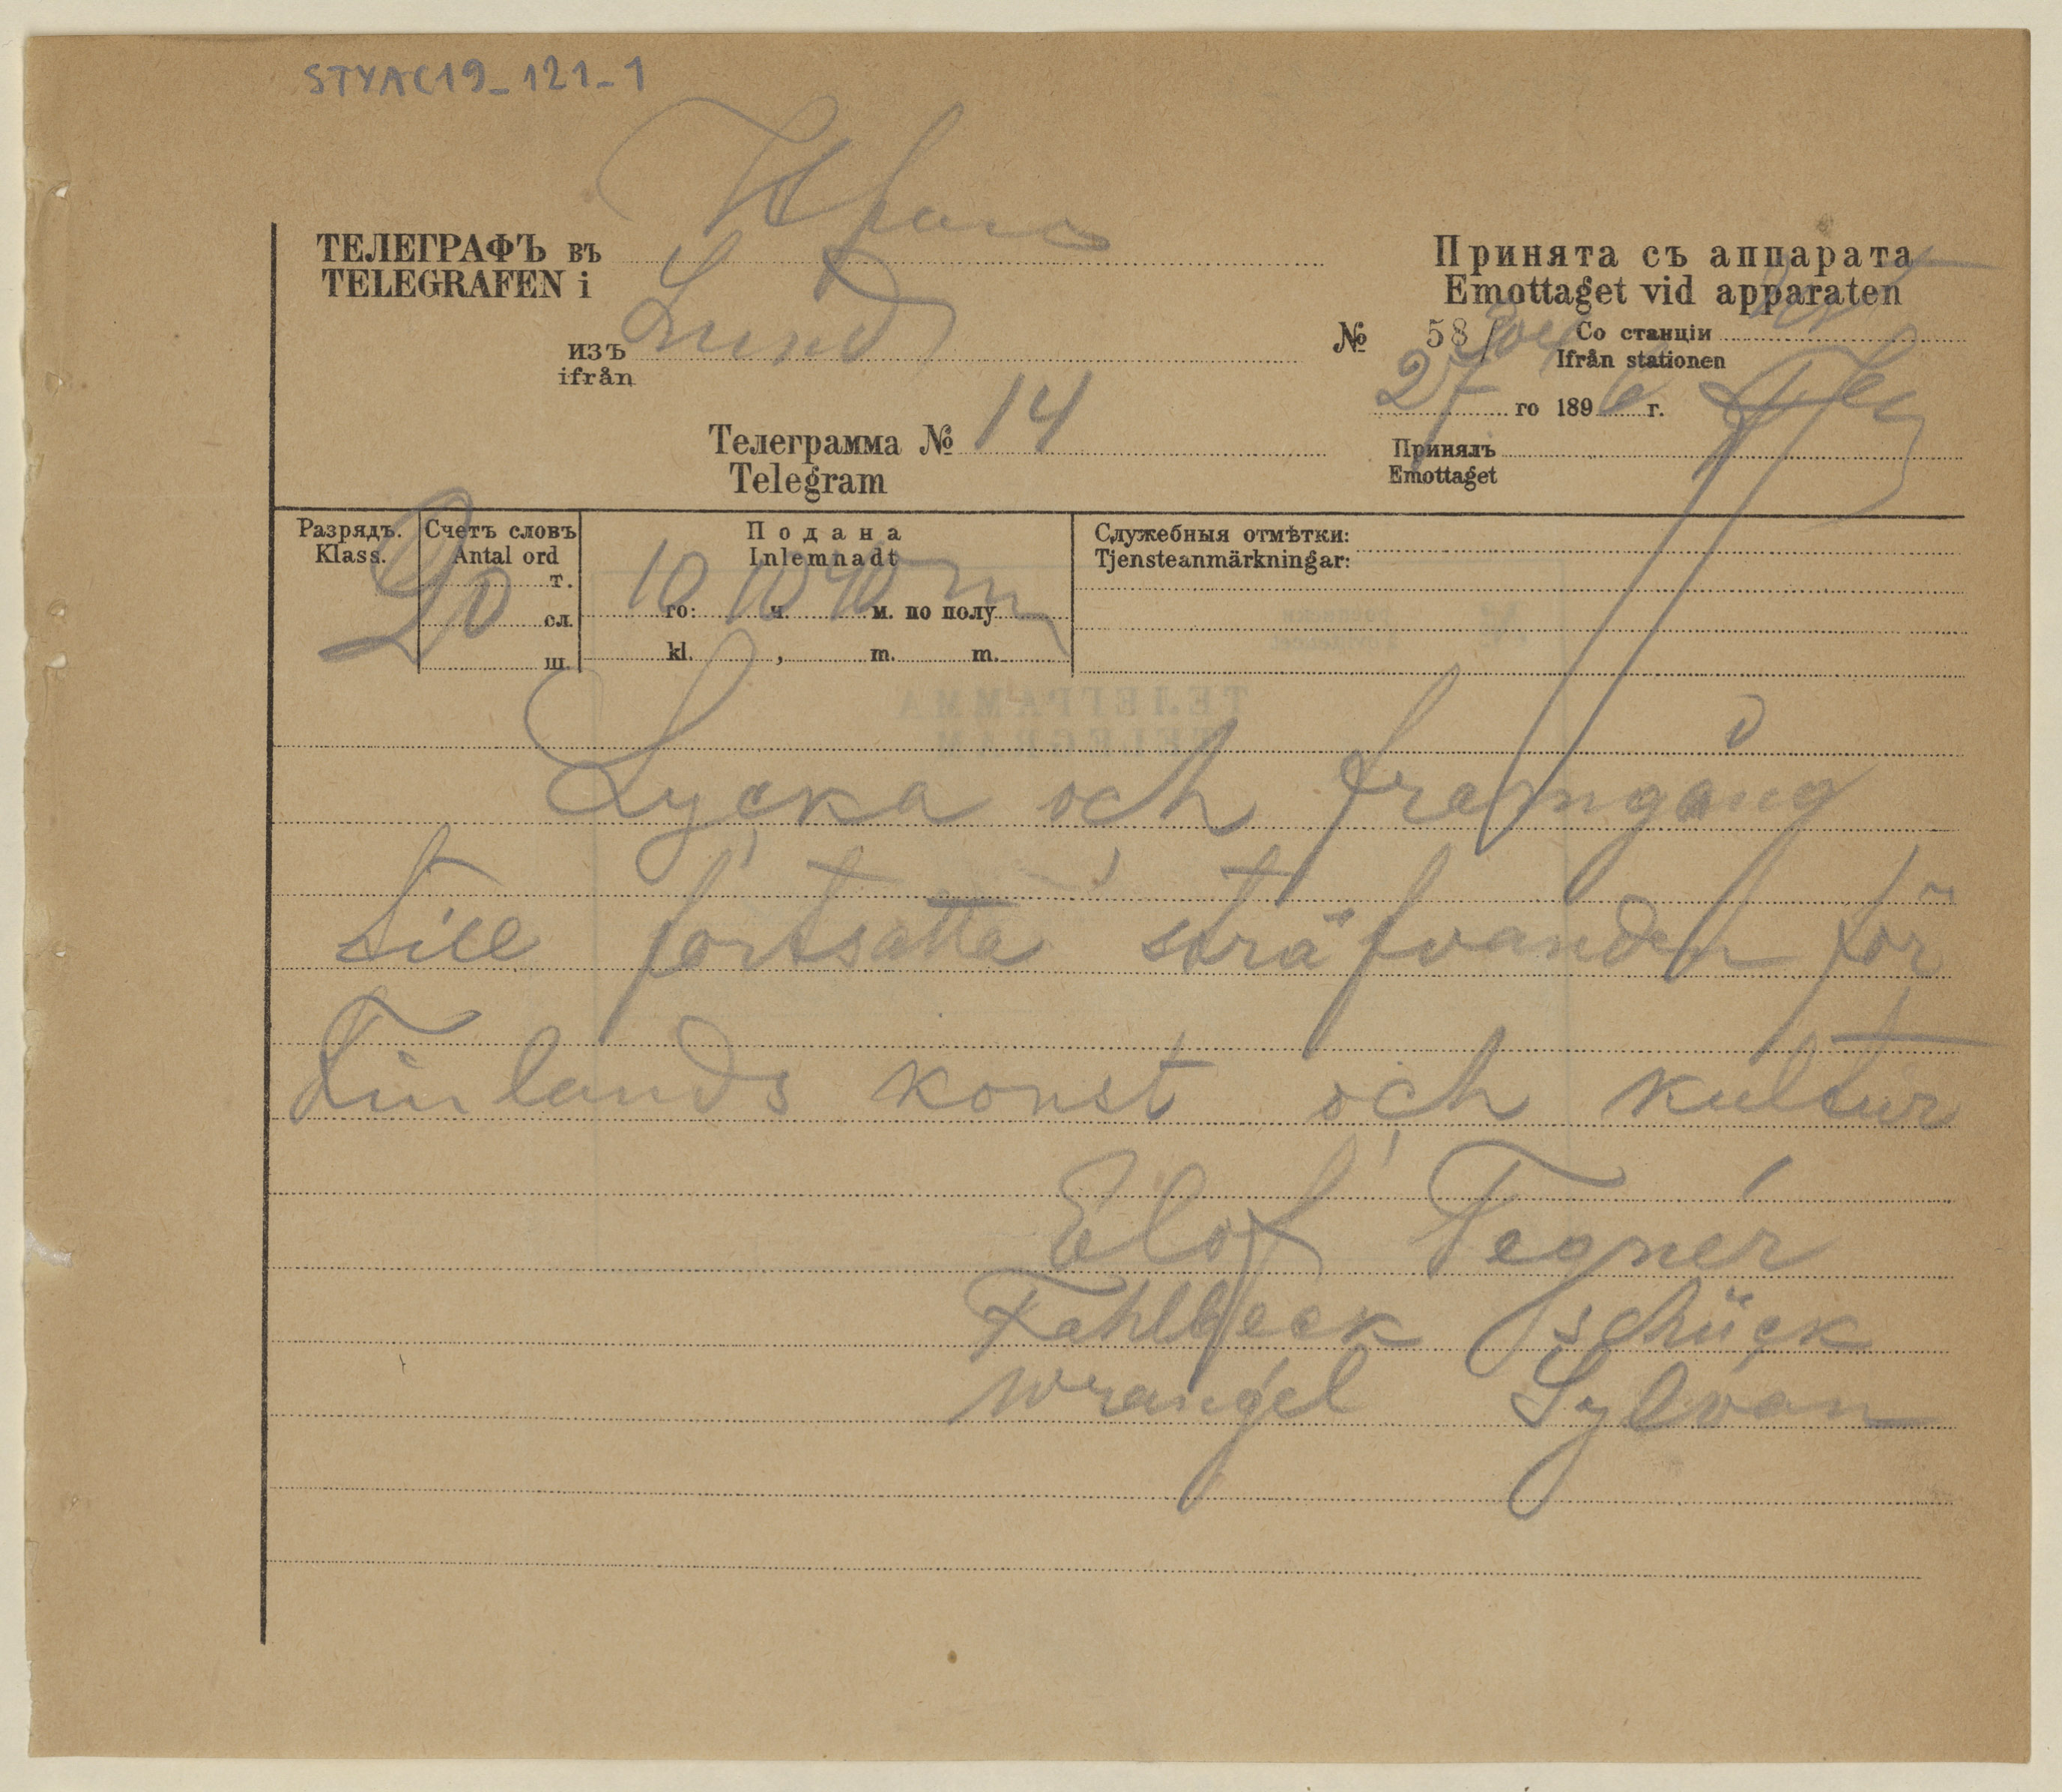 STYAC19_121_1
ТЕЛЕГРАФЪ въ
TELEGRAFEN i Hfors
изъ Lund
ifrån
Телеграмма № 14
Telegram
Принята съ аппарата
Emottaget vid apparaten
№ 58 Со станціи
Ifrån stationen
27 го 1896 г.
Принялъ
Emottaget
Разрядъ. Счетъ словъ Подана Служебныя отмѣтки:
Klass. Antal ord Inlemnadt Tjensteanmärkningar:
т.
20 сл. 10 го: 10 ч. 40 м. по полу m
ш. kl. , m. m.
Lycka och framgång
till fortsatta sträfvanden för
Finlands konst och kultur
Elof Tegnér
Fahlbeck schück
wrangel Sylvan